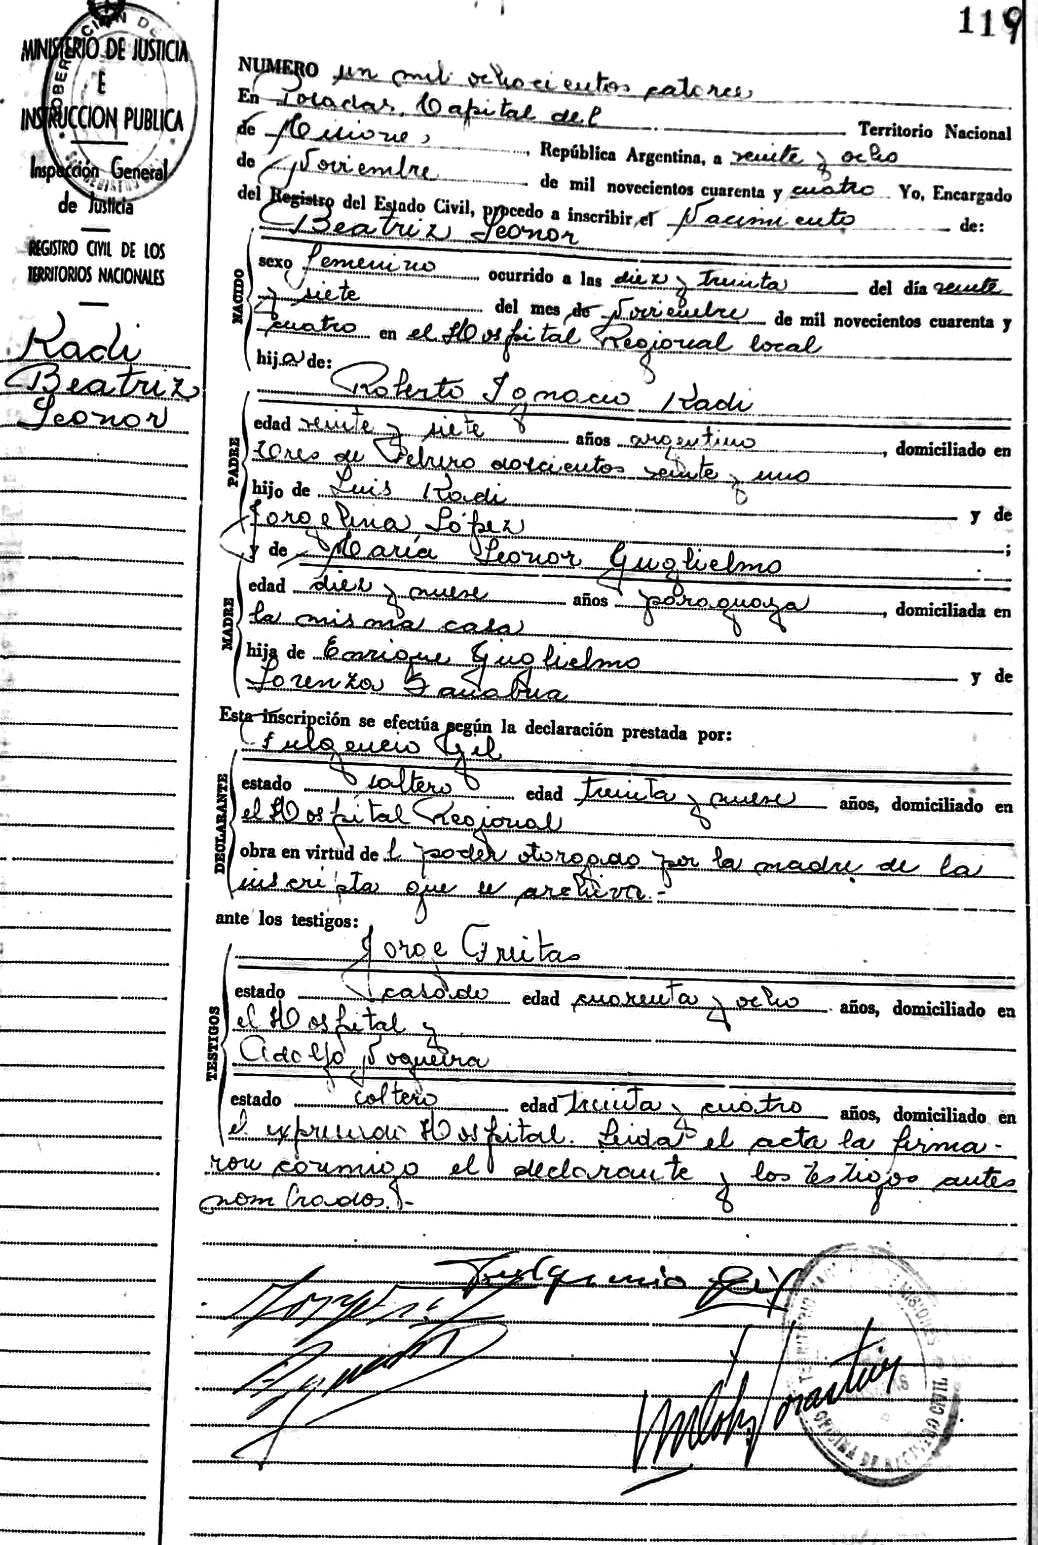 119
MINISTERIO DE JUSTICIA
E
INSTRUCCION PUBLICA
Inspección General
de Justicia
REGISTRO CIVIL DE LOS
TERRITORIOS NACIONALES
Kadi
Beatriz
Leonor
NUMERO un mil ochocientos catorce
En Posadas, Capital del Territorio Nacional
de Misiones, República Argentina, a veinte y ocho
de Noviembre de mil novecientos cuarenta y cuatro Yo, Encargado
del Registro del Estado Civil, procedo a inscribir el Nacimiento de:
Beatriz Leonor
NACIDO
sexo femenino ocurrido a las diez y treinta del día veinte
y siete del mes de Noviembre de mil novecientos cuarenta y
cuatro en el Hospital Regional local
hija de:
Roberto Ignacio Kadi
PADRE
edad veinte y siete años argentino, domiciliado en
tres de Febrero doscientos veinte y uno
hijo de Luis Kadi y de
Jorgelina López ;
y de María Leonor Guglielmo
MADRE
edad diez y nueve años paraguaya, domiciliada en
la misma casa
hija de Enrique Guglielmo y de
Lorenza Sanabria
Esta inscripción se efectúa según la declaración prestada por:
Fulgencio Gil
DECLARANTE
estado soltero edad treinta y nueve años, domiciliado en
el Hospital Regional
obra en virtud del poder otorgado por la madre de la
inscripta que se archiva.-
ante los testigos:
Jorge Freitas
TESTIGOS
estado casado edad cuarenta y ocho años, domiciliado en
el Hospital y
Adolfo Nogueira
estado soltero edad treinta y cuatro años, domiciliado en
el expresado Hospital. Leida el acta la firma-
ron conmigo el declarante y los testigos antes
nombrados.-
Fulgencio Gil
OFICINA DE REGISTRO CIVIL